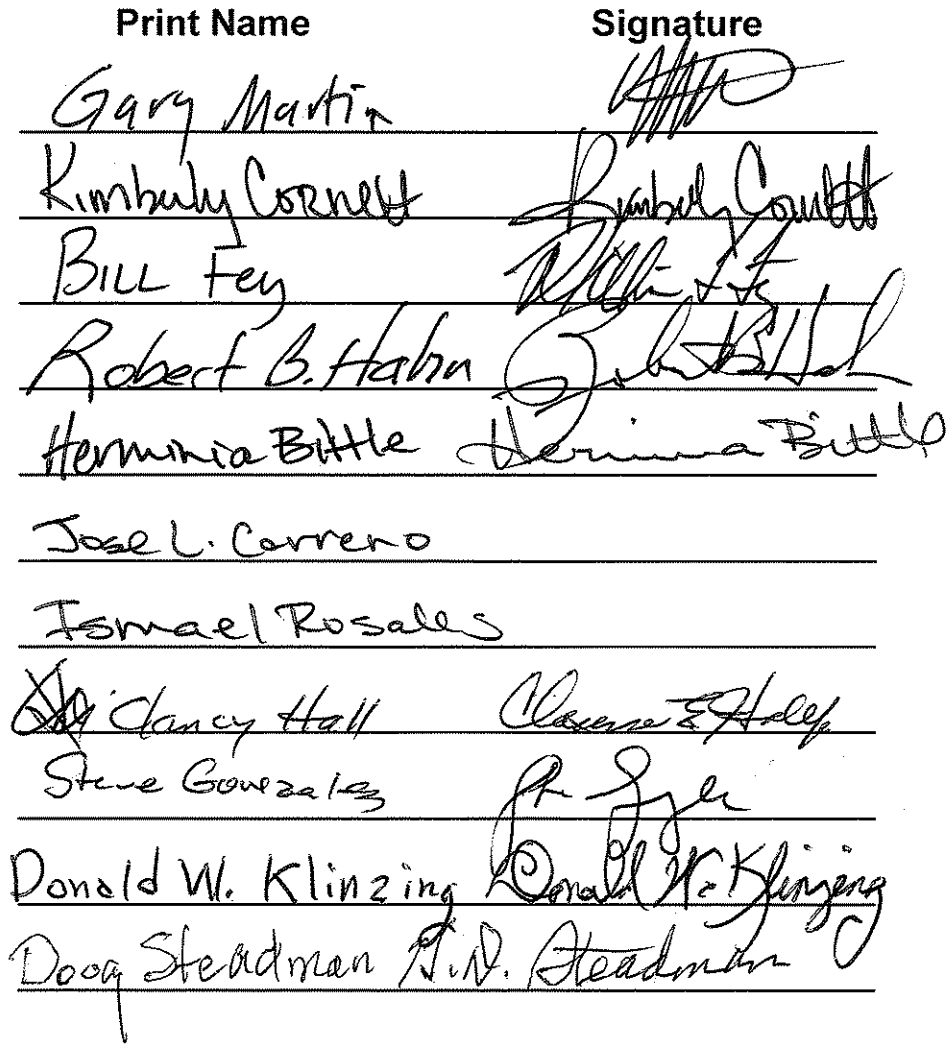 Print Name Signature
Gary Martin
Kimberly Cornett Kimberly Cornett
BILL Fey William F Fey
Robert B. Hahn Robert B Hahn
Herminia Bittle Herminia Bittle
Jose L. Carreno
Ismael Rosales
Clancy Hall Clarence E Hall Jr.
Steve Gonzalez
Donald W. Klinzing Donald W. Klinzing
Doog Steadman G.D. Steadman